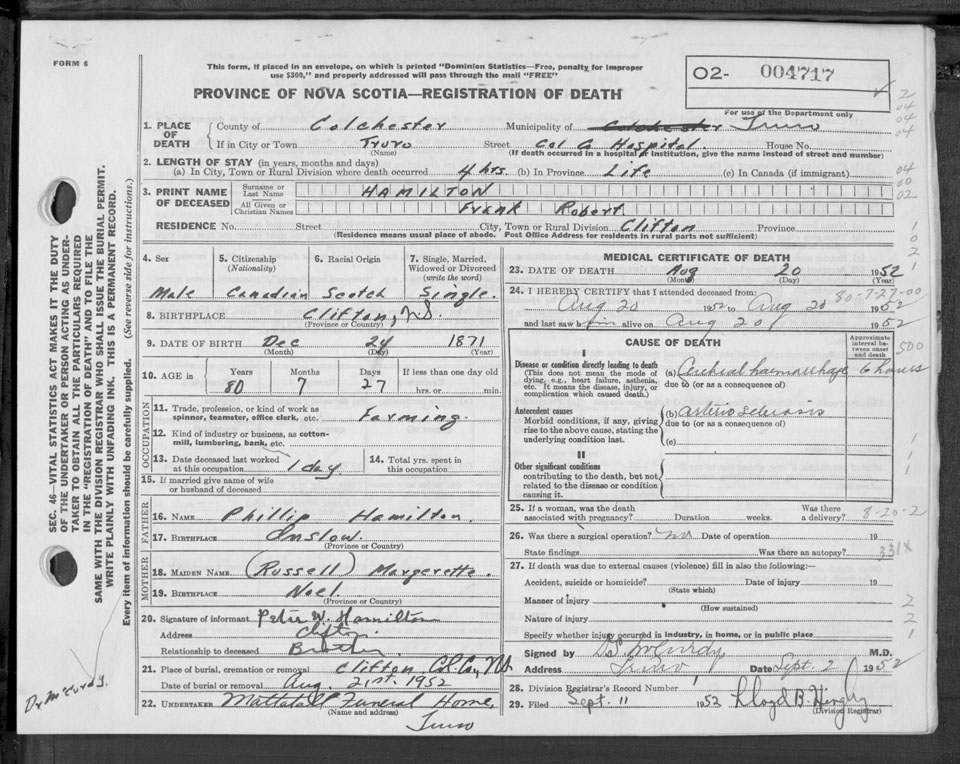 FORM 6
This form, if placed in an envelope, on which is printed "Dominion Statistics—Free, penalty for improper
use $300," and properly addressed will pass through the mail "FREE"
PROVINCE OF NOVA SCOTIA—REGISTRATION OF DEATH
O2- 004717
For use of the Department only
1. PLACE OF DEATH { County of Colchester Municipality of Colchester Truro
If in City or Town Truro Street Col Co Hospital House No.
(Name) (If death occurred in a hospital or institution, give the name instead of street and number)
2. LENGTH OF STAY (in years, months and days)
(a) In City, Town or Rural Division where death occurred 4 hrs. (b) In Province Life (c) In Canada (if immigrant)
3. PRINT NAME OF DECEASED { Surname or Last Name HAMILTON
All Given or Christian Names Frank Robert
RESIDENCE No. Street City, Town or Rural Division Clifton Province
(Residence means usual place of abode. Post Office Address for residents in rural parts not sufficient)
SEC. 46—VITAL STATISTICS ACT MAKES IT THE DUTY
OF THE UNDERTAKER OR PERSON ACTING AS UNDER-
TAKER TO OBTAIN ALL THE PARTICULARS REQUIRED
IN THE "REGISTRATION OF DEATH" AND TO FILE THE
SAME WITH THE DIVISION REGISTRAR WHO SHALL ISSUE THE BURIAL PERMIT.
WRITE PLAINLY WITH UNFADING INK. THIS IS A PERMANENT RECORD.
Every item of information should be carefully supplied. (See reverse side for instructions.)
4. Sex 5. Citizenship (Nationality) 6. Racial Origin 7. Single, Married, Widowed or Divorced (write the word)
Male Canadian Scotch Single.
8. BIRTHPLACE Clifton, N.S.
(Province or Country)
9. DATE OF BIRTH Dec 24 1871
(Month) (Day) (Year)
10. AGE in { Years Months Days If less than one day old
80 7 27 hrs. or min.
OCCUPATION
11. Trade, profession, or kind of work as
spinner, teamster, office clerk, etc. Farming.
12. Kind of industry or business, as cotton-
mill, lumbering, bank, etc.
13. Date deceased last worked at this occupation 1 day 14. Total yrs. spent in this occupation
15. If married give name of wife
or husband of deceased
FATHER
16. NAME Phillip Hamilton.
17. BIRTHPLACE Onslow.
(Province or Country)
MOTHER
18. MAIDEN NAME (Russell) Margerette.
19. BIRTHPLACE Noel.
(Province or Country)
20. Signature of informant Peter W. Hamilton
Address Clifton
Relationship to deceased Brother
21. Place of burial, cremation or removal Clifton, Col. Co., N.S.
Date of burial or removal Aug. 21st. 1952
22. UNDERTAKER Mattatall Funeral Home,
(Name and address) Truro
Dr McCurdy.
MEDICAL CERTIFICATE OF DEATH
23. DATE OF DEATH Aug 20 1952
(Month) (Day)
24. I HEREBY CERTIFY that I attended deceased from: 80-7-27-00
Aug 20 1952 to Aug 20 1952
and last saw him alive on Aug 20 1952
CAUSE OF DEATH Approximate interval between onset and death
500
I
Disease or condition directly leading to death
(This does not mean the mode of
dying, e.g., heart failure, asthenia,
etc. It means the disease, injury, or
complication which caused death.)
(a) Cerebral haemorrhage 6 hours
due to (or as a consequence of)
Antecedent causes
Morbid conditions, if any, giving
rise to the above cause, stating the
underlying condition last.
(b) arterio sclerosis
due to (or as a consequence of)
(c)
II
Other significant conditions
contributing to the death, but not
related to the disease or condition
causing it.
25. If a woman, was the death Was there
associated with pregnancy? Duration weeks. a delivery? 8-20-2
26. Was there a surgical operation? no Date of operation 19
State findings Was there an autopsy? 331X
27. If death was due to external causes (violence) fill in also the following:—
Accident, suicide or homicide? Date of injury 19
(State which)
Manner of injury
(How sustained)
Nature of injury
Specify whether injury occurred in industry, in home, or in public place
Signed by McCurdy M.D.
Address Truro Date Sept. 2 1952
28. Division Registrar's Record Number
29. Filed Sept. 11 1952 Lloyd B.
(Division Registrar)